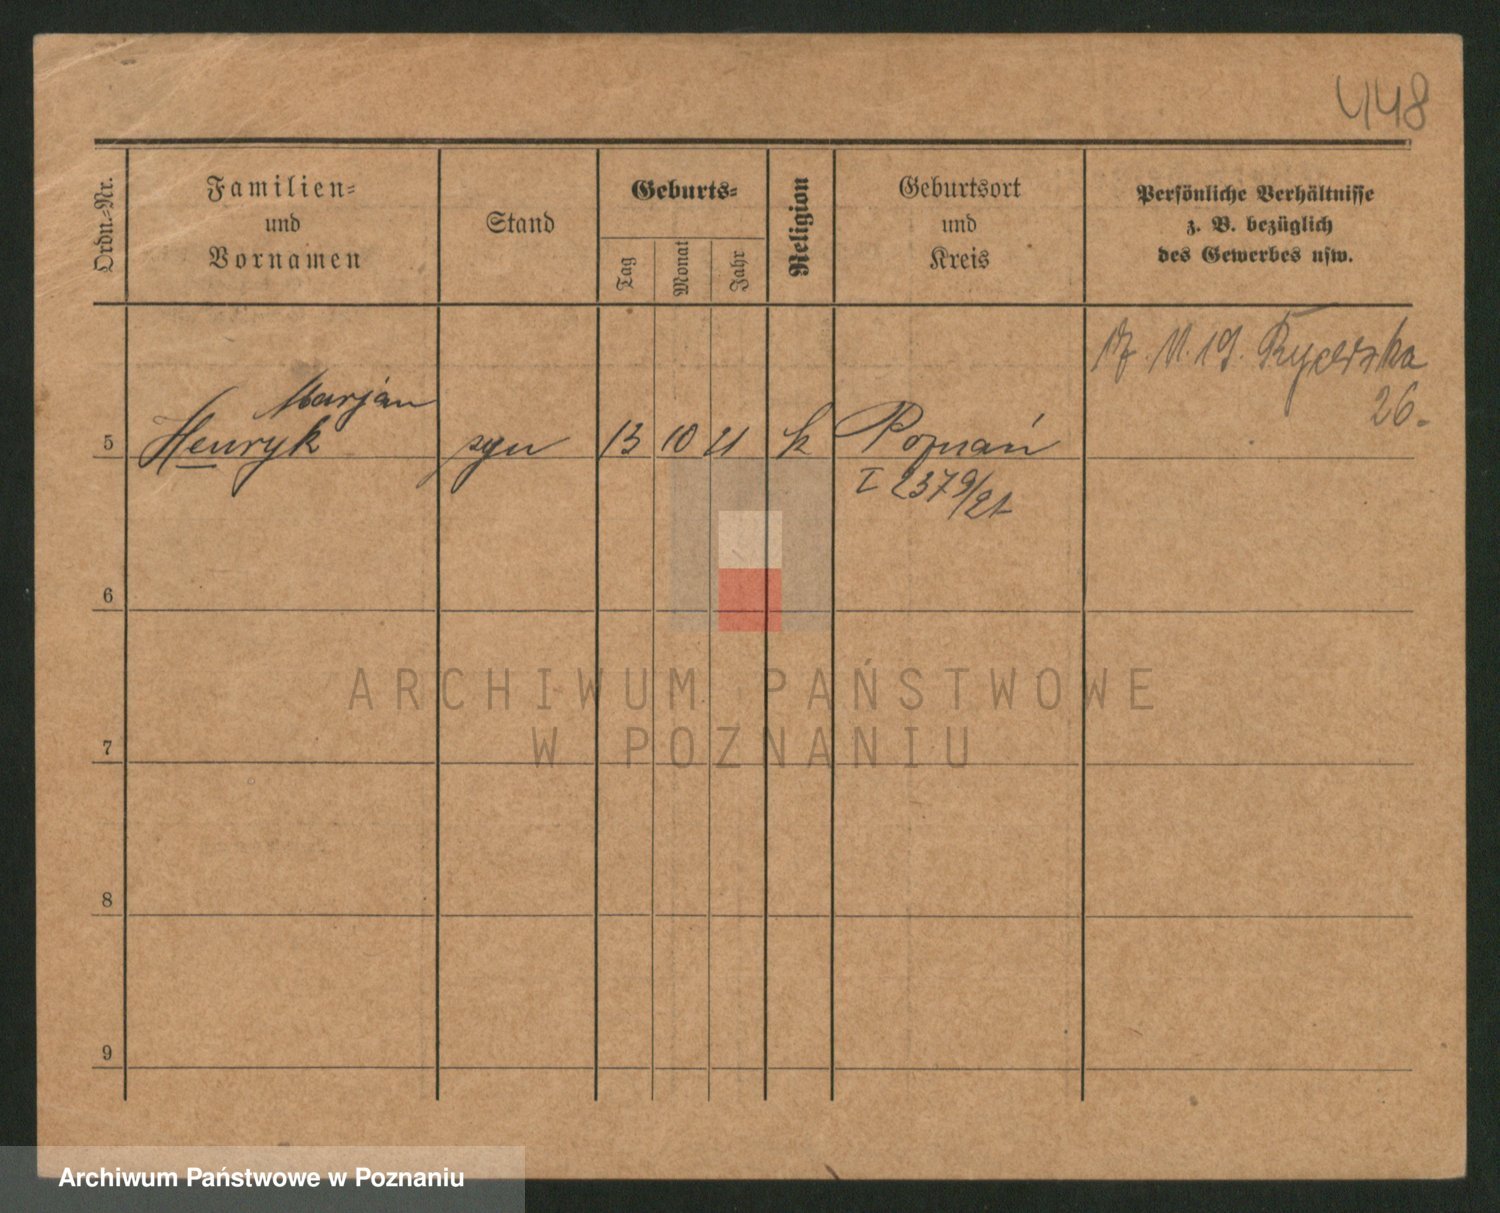 448
Ordn.-Nr.
Familien-
und
Vornamen
Stand
Geburts-
Tag
Monat
Jahr
Religion
Geburtsort
und
Kreis
Persönliche Verhältnisse
z. B. bezüglich
des Gewerbes usw.
11. 19. Rycerska
26.
Marjan
5 Henryk syn 13 10 21 k Poznań
I 2379/21
6
ARCHIWUM PAŃSTWOWE
W POZNANIU
7
8
9
Archiwum Państwowe w Poznaniu